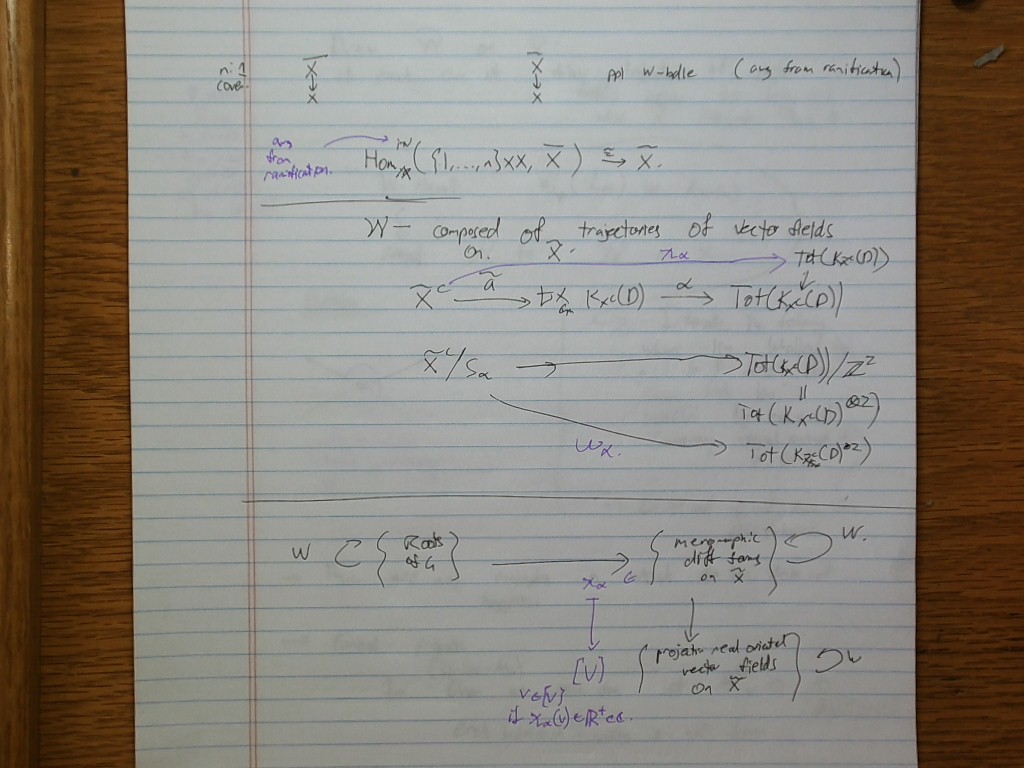 n:1
cover
X̄ ↓ X
X̃ ↓ X
ppl W-bdle (away from ramification)
away from ramification.
Hom/X^inv ({1,...,n}×X, X̄) ≅→ X̃.
W — composed of trajectories of vector fields
on. X̃.
λα → Tot(K_Xc(D))
X̃^c ã→ t× K_Xc(D) α→ Tot(K_Xc(D))
X̃^c/Sα → Tot(K_Xc(D))/Z2
=
Tot(K_Xc(D)^⊗2)
ωα. → Tot(K_Xc(D)^⊗2)
W ⊂ {Roots of G} → {meromorphic diff forms on X̃} W.
λα ∈
[V] {projective real oriented vector fields on X̃} W
v∈[V]
if λα(v) ∈ R⁺ ⊂ C.